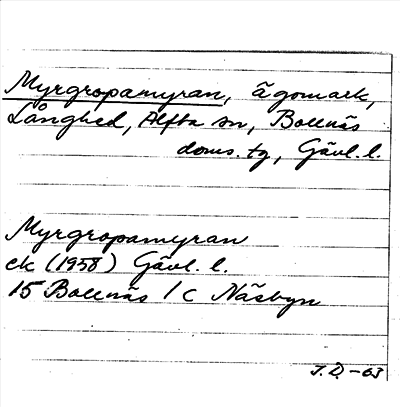 Myrgropamyran, ägomark,
Långhed, Alfta sn, Bollnäs
doms. tg, Gävl. l.
Myrgropamyran
ek (1958) Gävl. l.
15 Bollnäs 1 c Näsbyn
J.D.-63